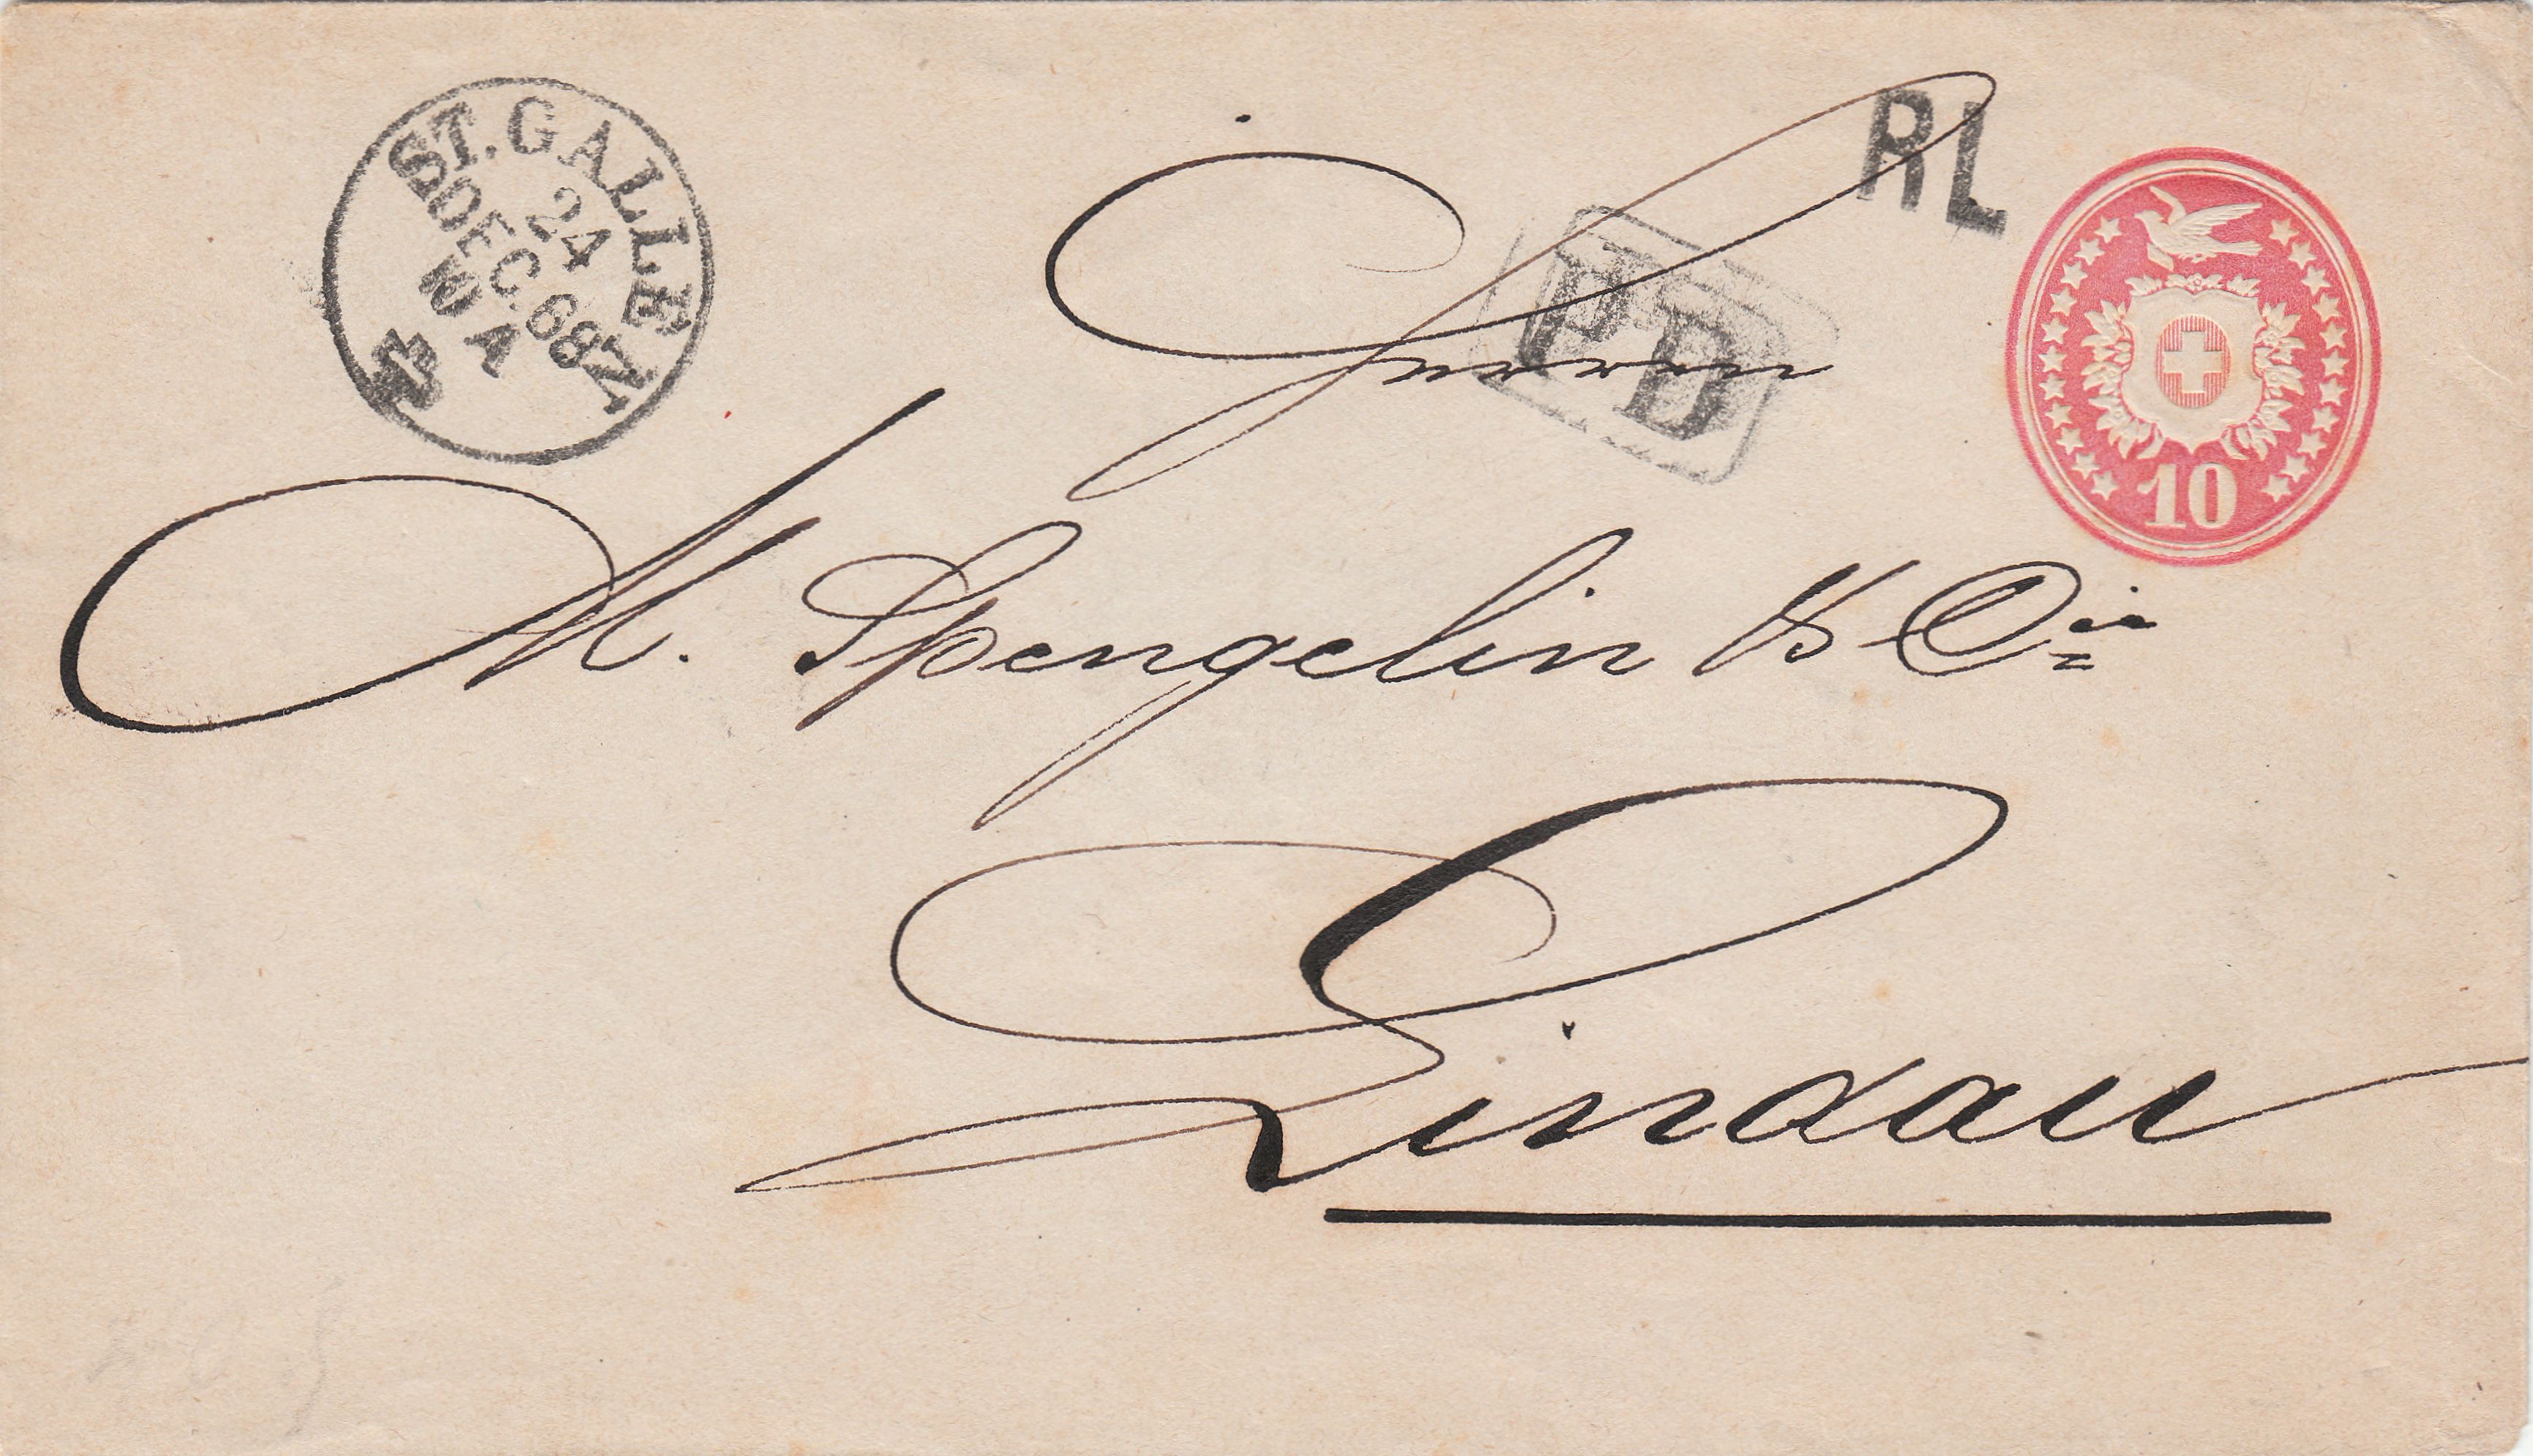 ST. GALLEN
24
DEC. 68
10 A
RL
PD
10
Herren
M. Spengelin & Cie
Lindau